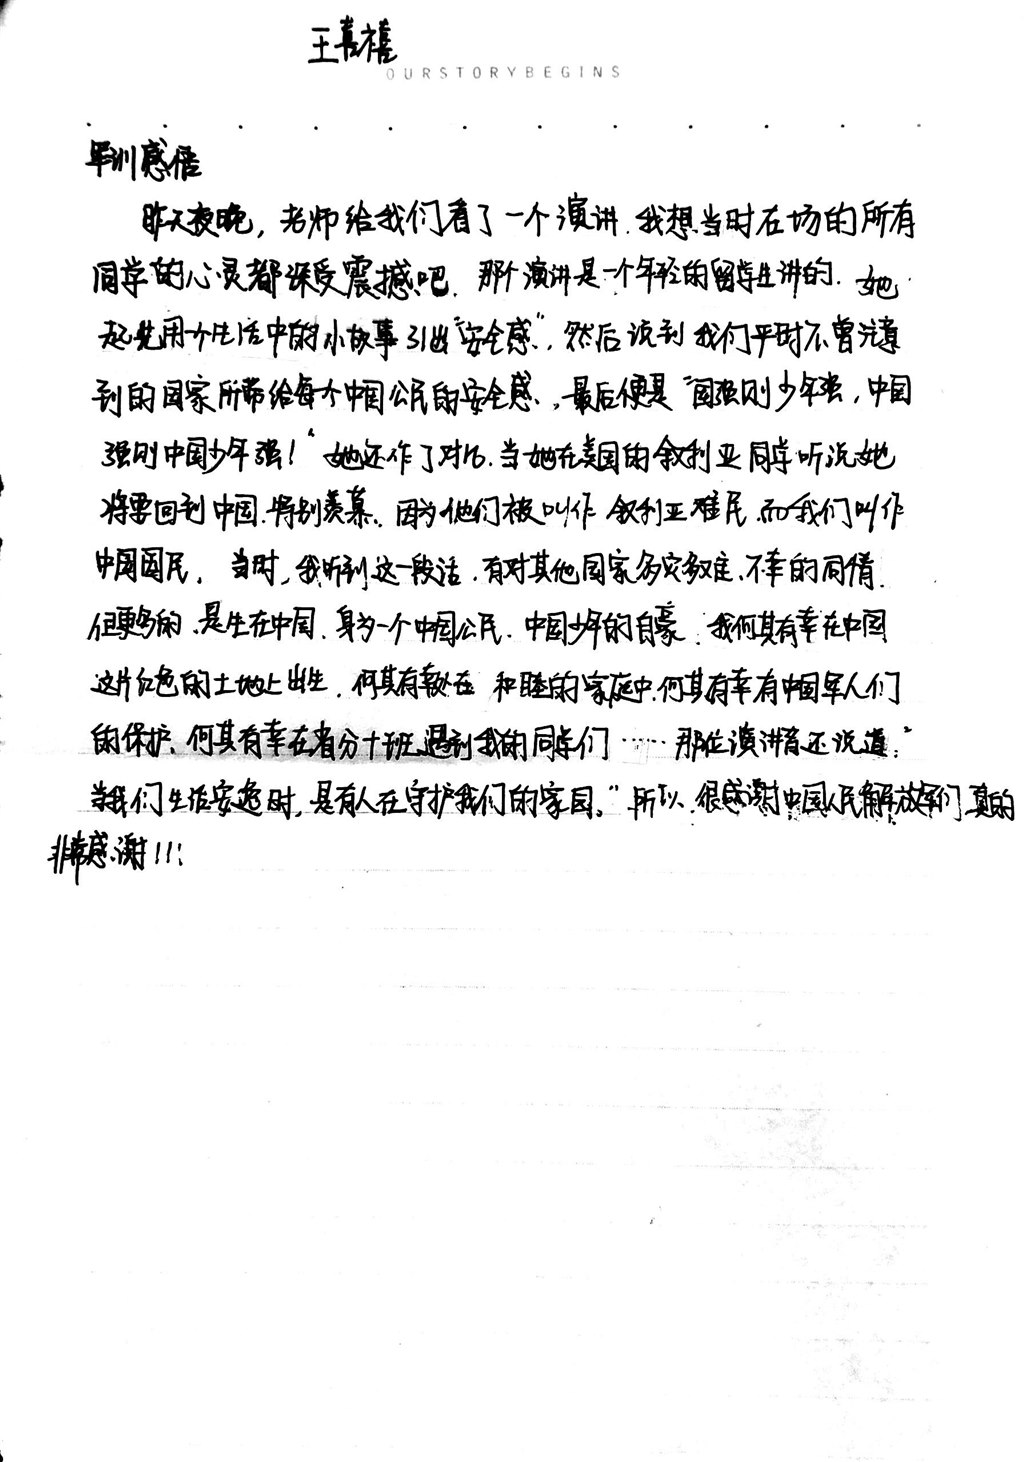 王喜禧
OURSTORYBEGINS
军训感悟
昨天夜晚，老师给我们看了一个演讲.我想当时在场的所有
同学的心灵都深受震撼吧.那个演讲是一个年轻的留学生讲的.她
起先用个生活中的小故事引出"安全感"，然后谈到我们平时不曾注意
到的国家所带给每个中国公民的安全感，最后便是"国强则少年强，中国
强则中国少年强！"她还作了对比.当她在美国的叙利亚同学听说她
将要回到中国.特别羡慕、因为他们被叫作叙利亚难民.而我们叫作
中国国民.当时，我听到这一段话.有对其他国家多灾多难、不幸的同情.
但更多的、是生在中国.身为一个中国公民.中国少年的自豪.我何其有幸在中国
这片红色的土地上出生.何其有幸处在和睦的家庭中.何其有幸有中国军人们
的保护、何其有幸在省分十班遇到我的同学们……那位演讲者还说道："
当我们生活安逸时,是有人在守护我们的家园。"所以、很感谢中国人民解放军们真的
非常感谢!!!